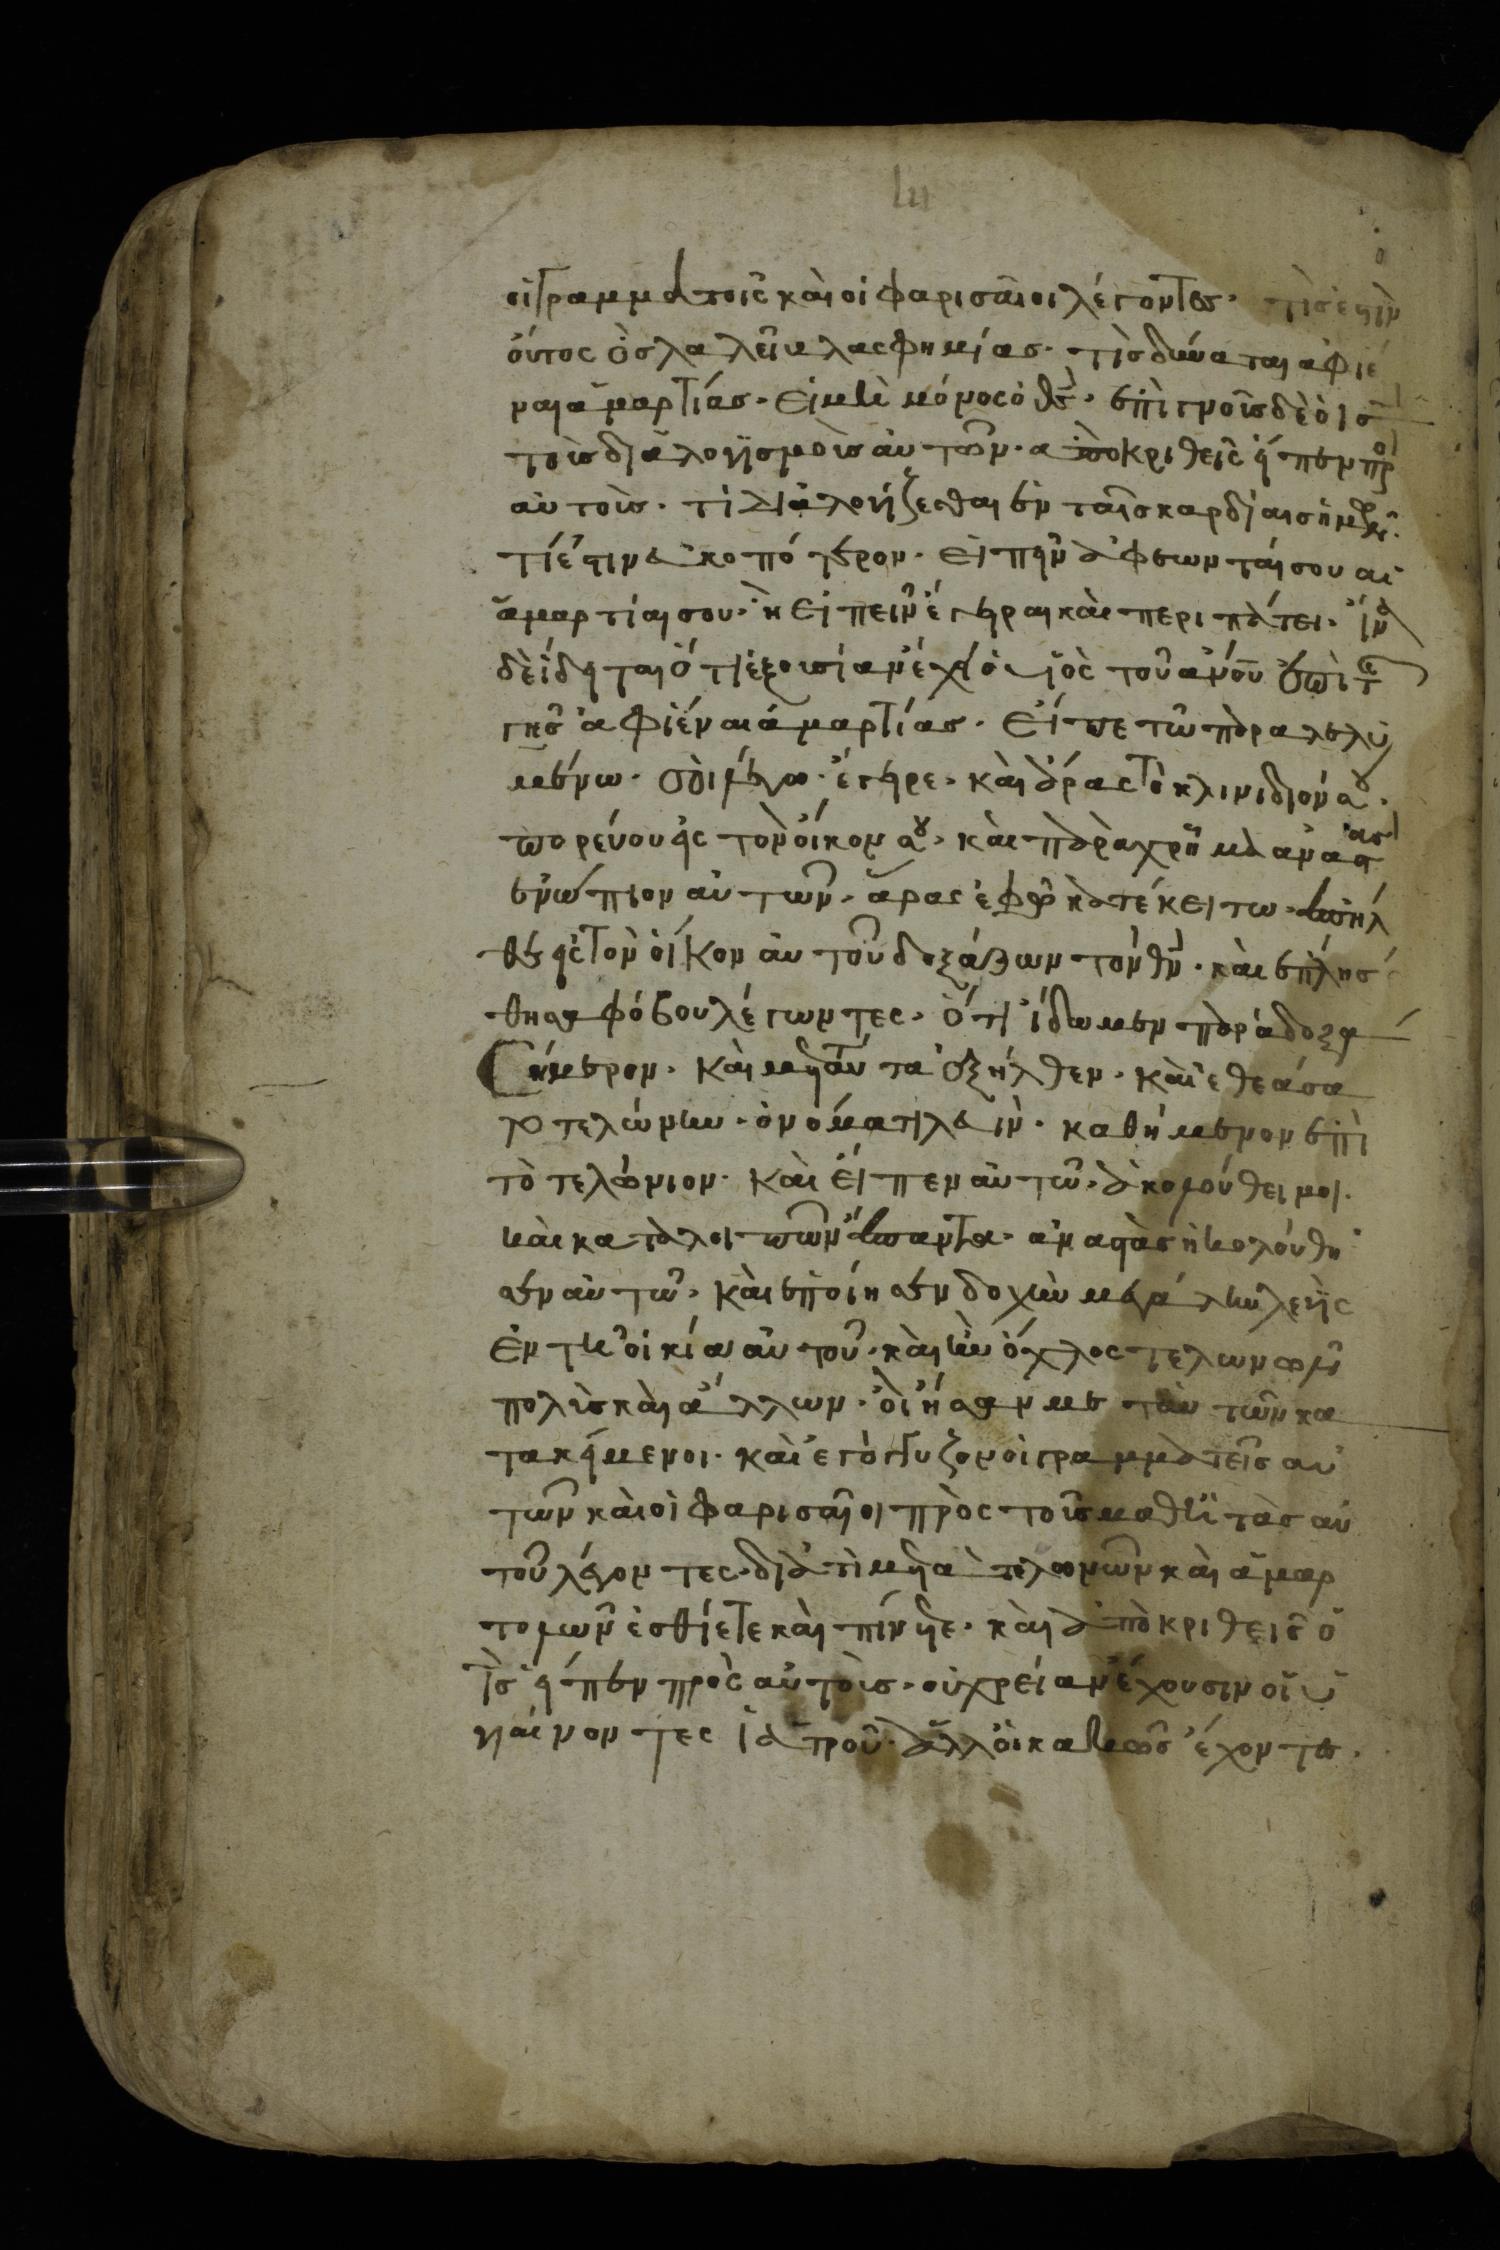 οἱ γραμματοις καὶ οἱ φαρισαῖοι λέγοντες· τίς ἐστὶν
οὗτος ὃς λαλεῖ βλασφημίας· τίς δύναται ἀφιέ
ναι ἁμαρτίας· εἰ μὴ μόνος ὁ θς· ἐπιγνοῖς δὲ ὁ ις
τοὶς διαλογϊσμοὶς αὐτῶν· ἀποκριθεὶς εἶπεν πρ
αὐτοὶς· τί διαλογίζεσθαι ἐν ταῖς καρδίαις ἡμῶν·
τί ἐστιν εὐκοπότερον· εἰπεῖν ἀφέωνταί σου αἱ
ἁμαρτίαι σου· ἢ εἰπεῖν ἔγειραι καὶ περιπάτει· ἵν
δὲ εἰδῆται ὅτι ἐξουσίαν ἔχει ὁ υἱὸς τοῦ ἀνου ἐπὶ τ
γῆς ἀφιέναι ἁμαρτίας· εἶπε τῶ παραλελυ
μένω· σοὶ λέγω· ἔγειρε· καὶ ἄρας τὸ κλινιδιόν σου·
πορεύου εἰς τὸν οἶκον σου· καὶ παραχρῆμα ἀναστας
ἐνώπιον αὐτῶν· ἄρας ἐφ ὃ κατέκειτω· ἀπῆλ
θεν εἰς τὸν οἶκον αὐτοῦ δοξάζων τὸν θν· καὶ ἐπλησ
θησαν φόβου λέγωντες· ὅτι ἴδωμεν παράδοξα
Σήμερον· καὶ μετὰ ταῦτα ἐξῆλθεν· καὶ ἐθεάσα
το τελώνην· ὀνόματι λευὶν· καθήμενον ἐπὶ
τὸ τελώνιον· καὶ εἶπεν αὐτῶ· ἀκολούθει μοι·
καὶ καταλοιπὼν ἅπαντα· ἀναστὰς ἠκολούθη
σεν αὐτῶ· καὶ ἐποίησεν δοχὴν μεγάλην λευῒς
ἐν τῆ οἰκία αὐτοῦ· καὶ ἦν ὄχλος τελωνῶν
πολὶς καὶ ἄλλων· οἳ ἦσαν μετ αὐτῶν κα
τακείμενοι· καὶ ἐγόγγυζον οἱ γραμματεῖς αὐ
τῶν καὶ οἱ φαρισαῖοι πρὸς τοῖς μαθητὰς αὐ
τοῦ λέγοντες· διατὶ μετὰ τελωνῶν καὶ ἁμαρ
τολῶν ἐσθίετε καὶ πίνετε· καὶ ἀποκριθεὶς ὁ
ις εἶπεν πρὸς αὐτοὶς· οὐ χρείαν ἔχουσιν οἱ ὑ
γιαίνοντες ἰατροῦ· ἀλλ οἱ κακῶς ἔχοντες·